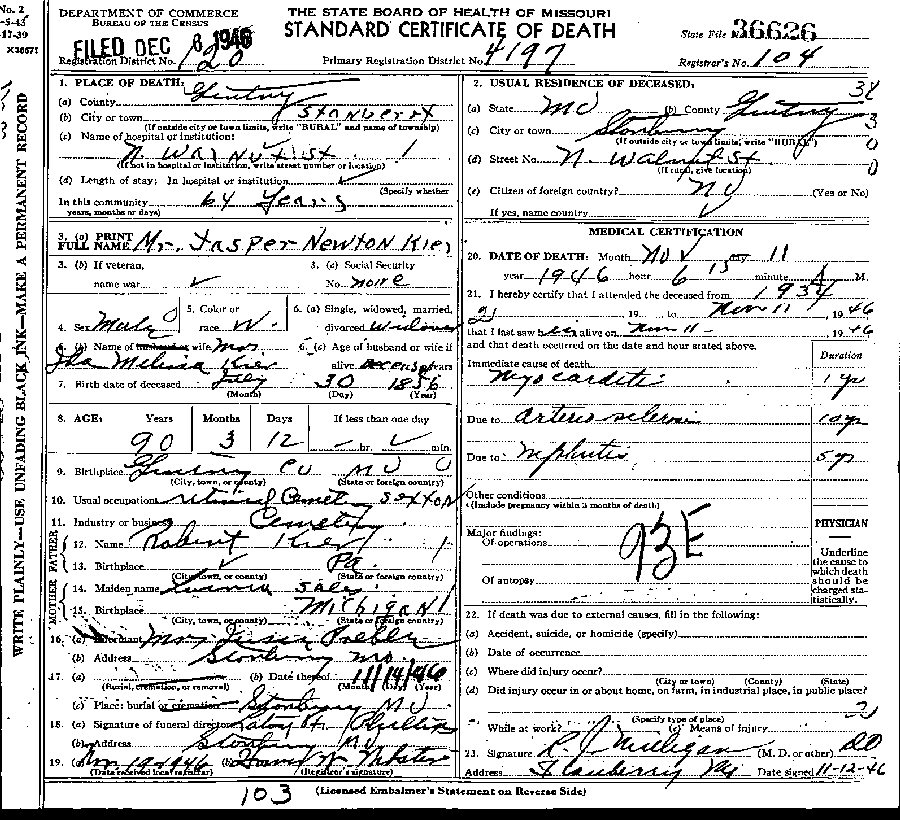 No. 2
-5-43
-17-39
X36671
WRITE PLAINLY—USE UNFADING BLACK INK—MAKE A PERMANENT RECORD
DEPARTMENT OF COMMERCE
BUREAU OF THE CENSUS
THE STATE BOARD OF HEALTH OF MISSOURI
STANDARD CERTIFICATE OF DEATH
FILED DEC 6 1946
State File No. 36626
Registration District No. 120
Primary Registration District No. 4197
Registrar's No. 104
1. PLACE OF DEATH:
(a) County Gentry
(b) City or town Stanberry
(If outside city or town limits, write "RURAL" and name of township)
(c) Name of hospital or institution:
N. Walnut St.
(If not in hospital or institution, write street number or location)
(d) Length of stay: In hospital or institution
(Specify whether
In this community 64 Years
years, months or days)
3. (a) PRINT FULL NAME Mr. Jasper Newton Kier
3. (b) If veteran, name war
3. (c) Social Security No. none
4. Sex Male
5. Color or race W.
6. (a) Single, widowed, married, divorced widowed
6. (b) Name of husband or wife Mrs
Ida Melissa Kier
6. (c) Age of husband or wife if alive years
7. Birth date of deceased July 30 1856
(Month) (Day) (Year)
8. AGE: Years Months Days If less than one day
90 3 12 hr. min.
9. Birthplace Gentry Co Mo
(City, town, or county) (State or foreign country)
10. Usual occupation retired Cemet sexton
11. Industry or business Cemetery
FATHER
12. Name Robert Kier
13. Birthplace Pa.
(City, town, or county) (State or foreign country)
MOTHER
14. Maiden name
15. Birthplace Michigan
(City, town, or county) (State or foreign country)
16. (a) Informant Mrs
(b) Address Stanberry Mo.
17. (a) (b) Date thereof 11/14/46
(Burial, cremation, or removal) (Month) (Day) (Year)
(c) Place: burial or cremation Stanberry Mo
18. (a) Signature of funeral director Phillips
(b) Address Stanberry Mo
19. (a) (b)
(Date received local registrar) (Registrar's signature)
2. USUAL RESIDENCE OF DECEASED:
(a) State Mo (b) County Gentry
(c) City or town Stanberry
(If outside city or town limits, write "RURAL")
(d) Street No. N. Walnut St
(If rural, give location)
(e) Citizen of foreign country? No (Yes or No)
If yes, name country
MEDICAL CERTIFICATION
20. DATE OF DEATH: Month Nov day 11
year 1946 hour 6 15 minute A M.
21. I hereby certify that I attended the deceased from 1934
19 to Nov 11, 1946
that I last saw h alive on Nov 11, 1946
and that death occurred on the date and hour stated above.
Duration
Immediate cause of death
Myocarditis 1 yr
Due to Arterio sclerosis 10 yr
Due to Nephritis 5 yr
Other conditions
(Include pregnancy within 3 months of death)
PHYSICIAN
Major findings:
Of operations
93E
Of autopsy
Underline the cause to which death should be charged statistically.
22. If death was due to external causes, fill in the following:
(a) Accident, suicide, or homicide (specify)
(b) Date of occurrence
(c) Where did injury occur?
(City or town) (County) (State)
(d) Did injury occur in or about home, on farm, in industrial place, in public place?
(Specify type of place)
While at work? (e) Means of injury
23. Signature R. J. Milligan (M. D. or other) DO
Address Stanberry Mo Date signed 11-12-46
103
(Licensed Embalmer's Statement on Reverse Side)